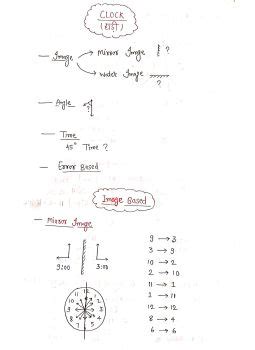 CLOCK
(घड़ी)
— Image → Mirror Image ?
→ Water Image ?
— Angle ?
— Time
45° Time ?
— Error Based
Image Based
— Mirror Image
9:00 3:00
9 → 3
3 → 9
10 → 2
2 → 10
11 → 1
1 → 11
12 → 12
8 → 4
6 → 6